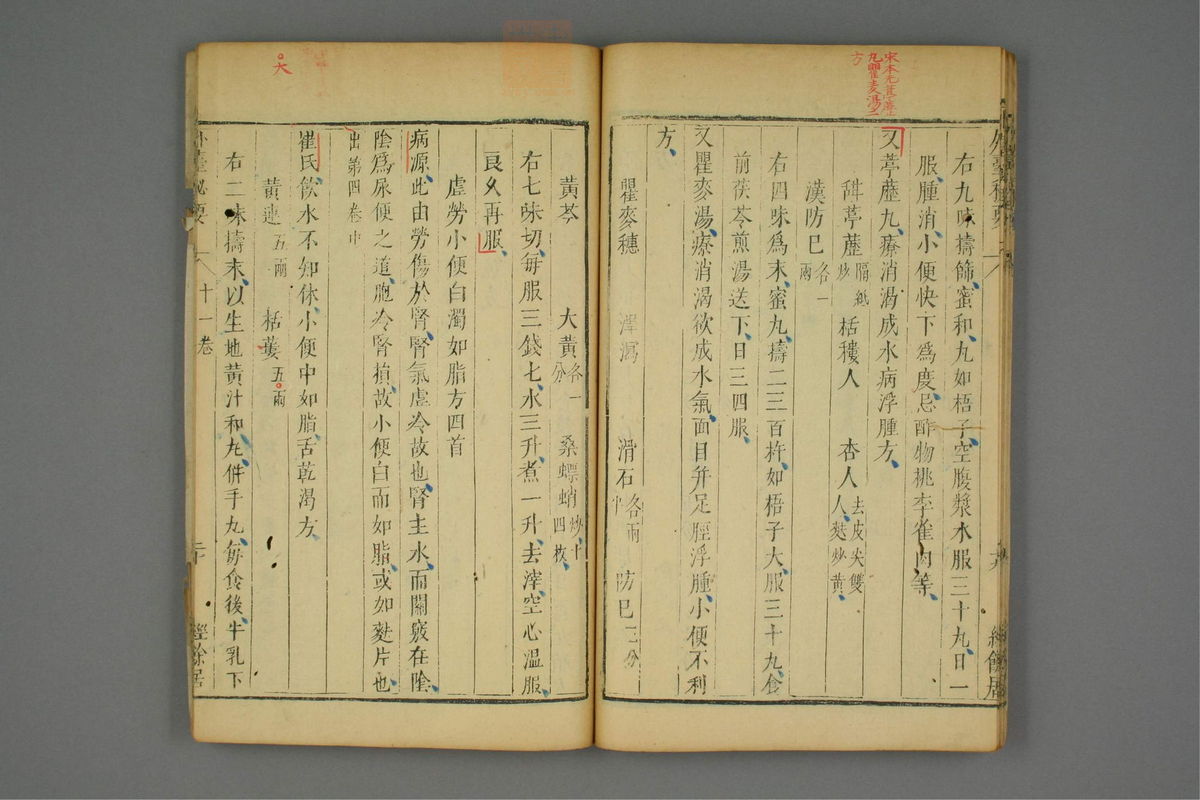 外臺秘要
右九味擣篩蜜和丸如梧子空腹漿水服三十丸日一
服腫消小便快下爲度忌酢物桃李雀肉等
又葶藶丸療消渴成水病浮腫方
甜葶藶隔紙炒 栝樓人 杏人去皮尖雙人麩炒黃
漢防巳各一兩
右四味爲末蜜丸擣二三百杵如梧子大服三十丸食
前茯苓煎湯送下日三四服
又瞿麥湯療消渴欲成水氣面目并足脛浮腫小便不利
方
瞿麥穗 澤瀉 滑石各半兩 防巳三分
黃芩 大黃各一分 桑螵蛸炒十四枚
右七味切每服三錢七水三升煮一升去滓空心溫服
良久再服
虛勞小便白濁如脂方四首
病源此由勞傷於腎腎氣虛冷故也腎主水而關竅在陰
陰爲尿便之道胞冷腎損故小便白而如脂或如麩片也
出第四卷中
崔氏飲水不知休小便中如脂舌乾渴方
黃連五兩 栝蔞五兩
右二味擣末以生地黃汁和丸併手丸每食後牛乳下
外臺秘要 十一卷 二十 經餘居
大